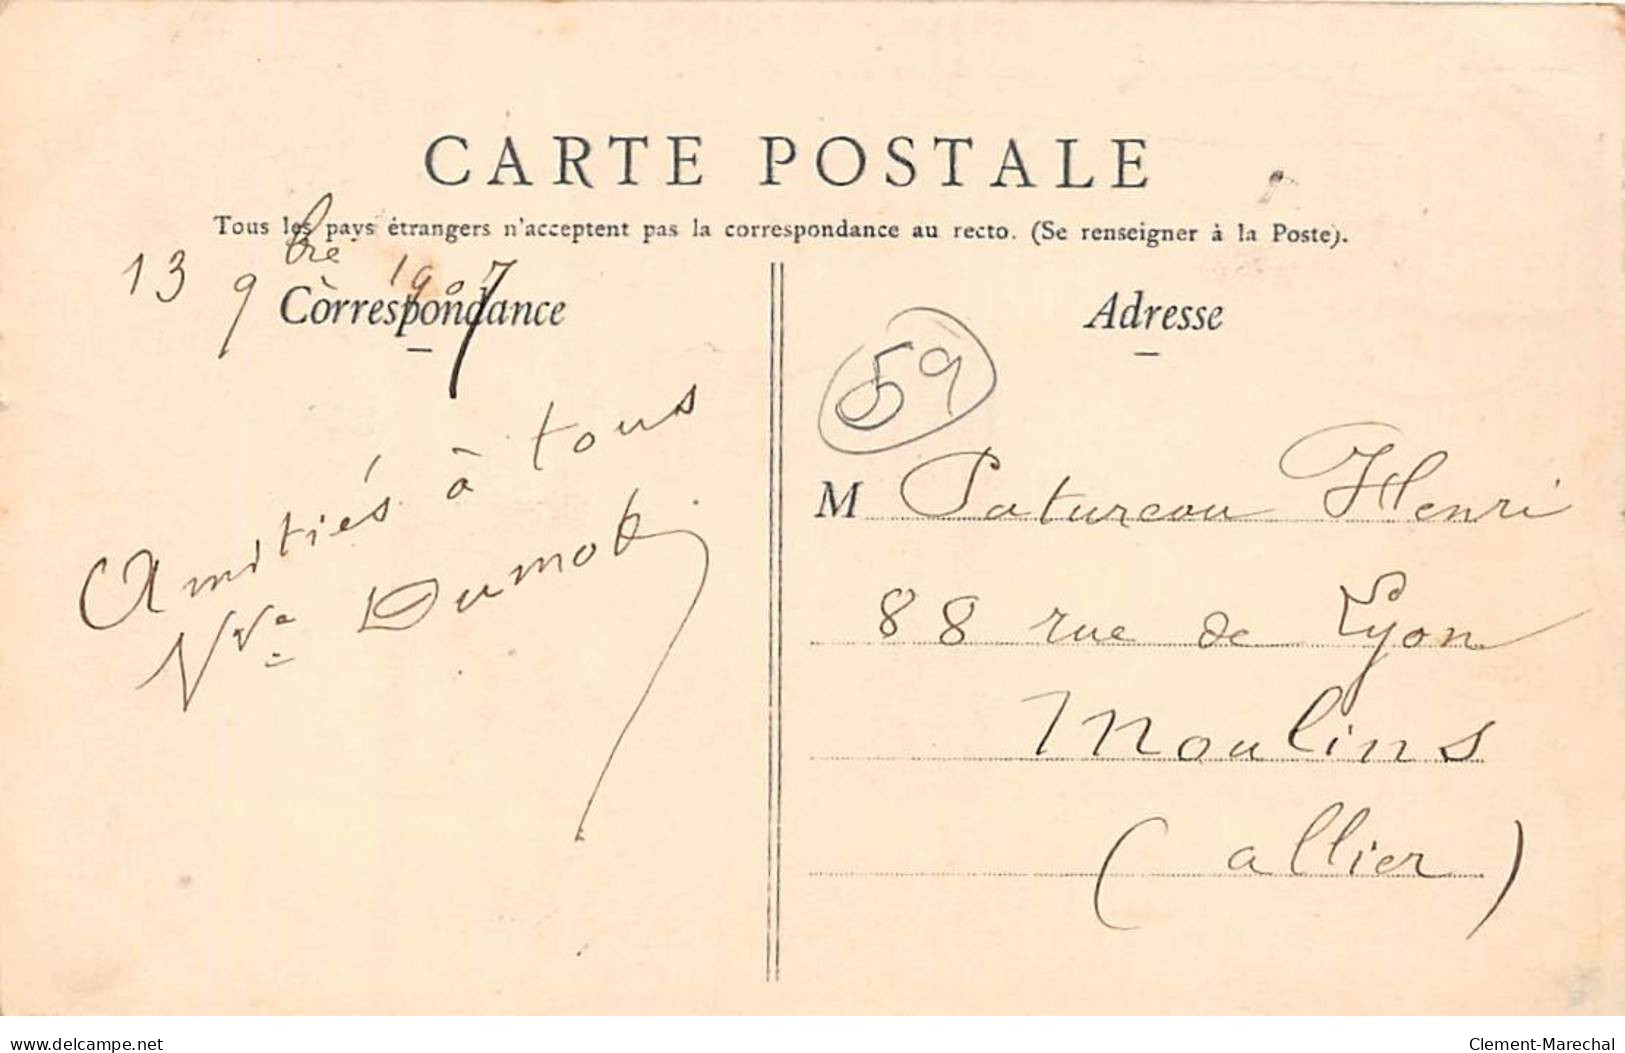 CARTE POSTALE
Tous les pays étrangers n'acceptent pas la correspondance au recto. (Se renseigner à la Poste).
13 9bre 1907
Correspondance
Amitiés à tous
Vve
Adresse
59
M Patureau Henri
88 rue de Lyon
Moulins
(allier)
www.delcampe.net
Clement-Marechal